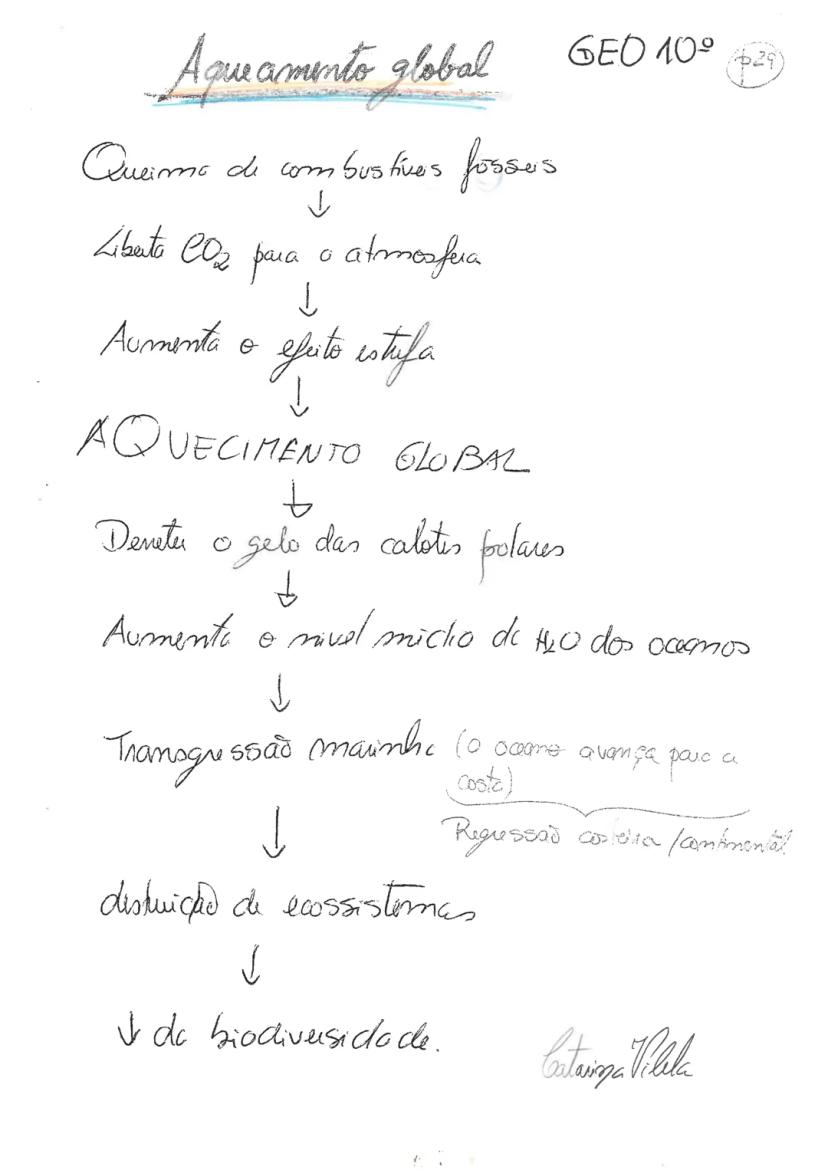 Aqueamento global
GEO 10º
p29
Queima de combustíveis fósseis
↓
Liberta CO₂ para a atmosfera
↓
Aumenta o efeito estufa
↓
AQUECIMENTO GLOBAL
↓
Derreter o gelo das calotes polares
↓
Aumenta o nível médio de H₂O dos oceanos
↓
Transgressão marinha (o oceano avança para a
costa)
Regressão costeira / continental
↓
destruição de ecossistemas
↓
↓ da biodiversidade.
Catarina Vilela